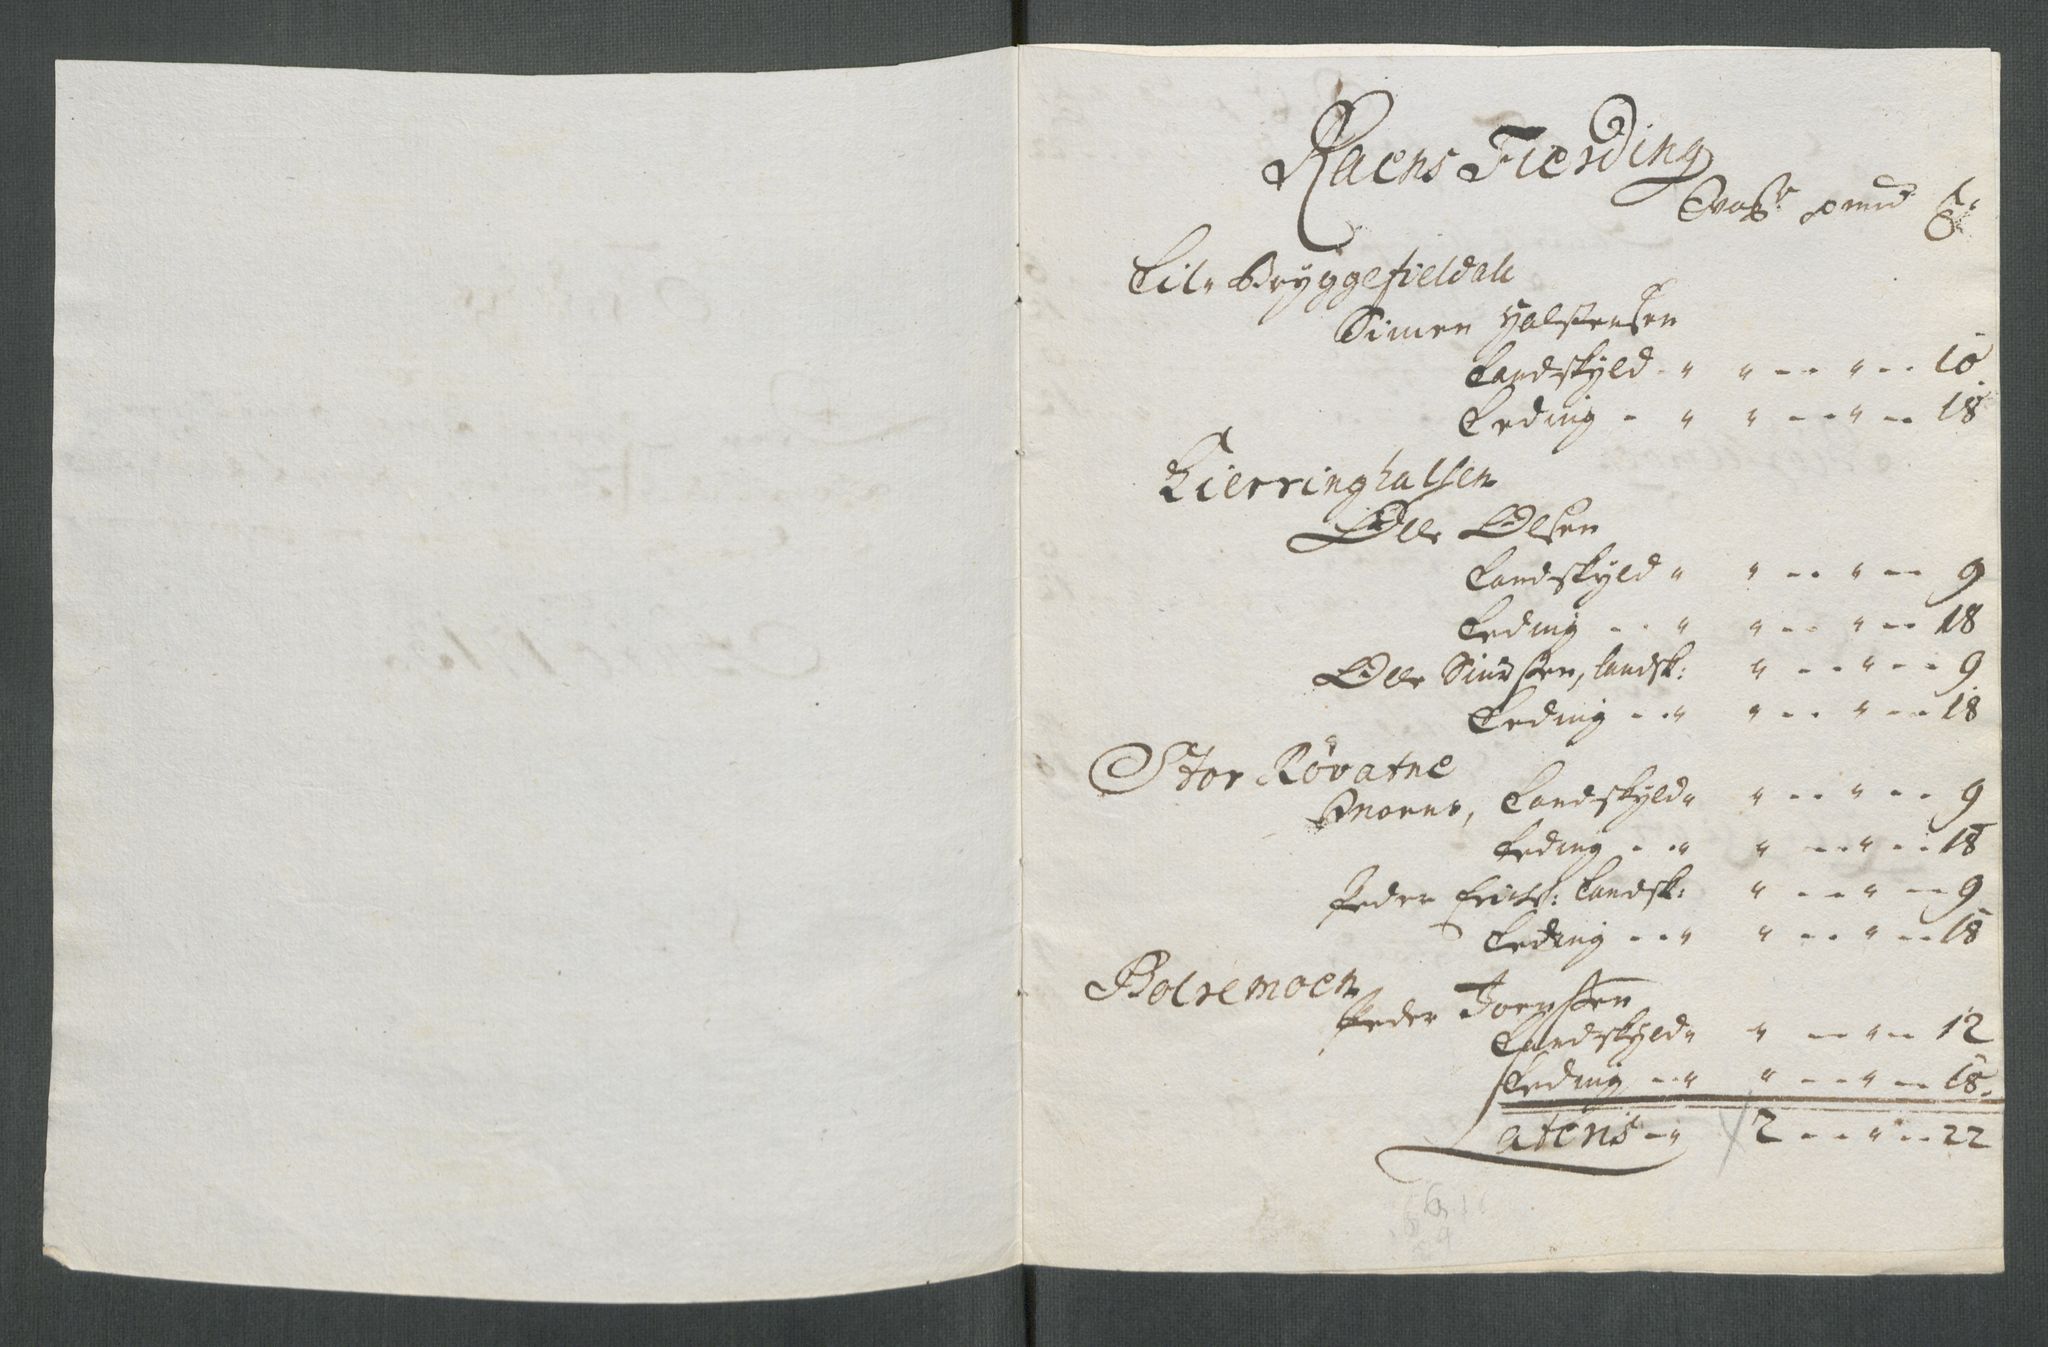 Raens Fierding
Woger pund ℔:
Lil: Bryggefieldall
Simen Halstensen
Landskyld - " " - - " - - 10
Leding - " " - - " - - 18
Kierringhalsen
Olle Olsen
Landskyld " " - - " - - 9
Leding - - " " - - " - - 18
Olle Siursen, landsk: " - - " - - 9
Leding - - " " - - " - - 18
Stor Røvatne
Mons, Landskyld " " - - " - - 9
Leding - - " " - - " - - 18
Peder Erichs: Landsk: " - - " - - 9
Leding - - " " - - " - - 18
Bolremoen
Peder Joensen
Landskyld " " - - " - - 12
Leding - - " " - - " - - 18.
Lateris - " 2 - - " - - 22